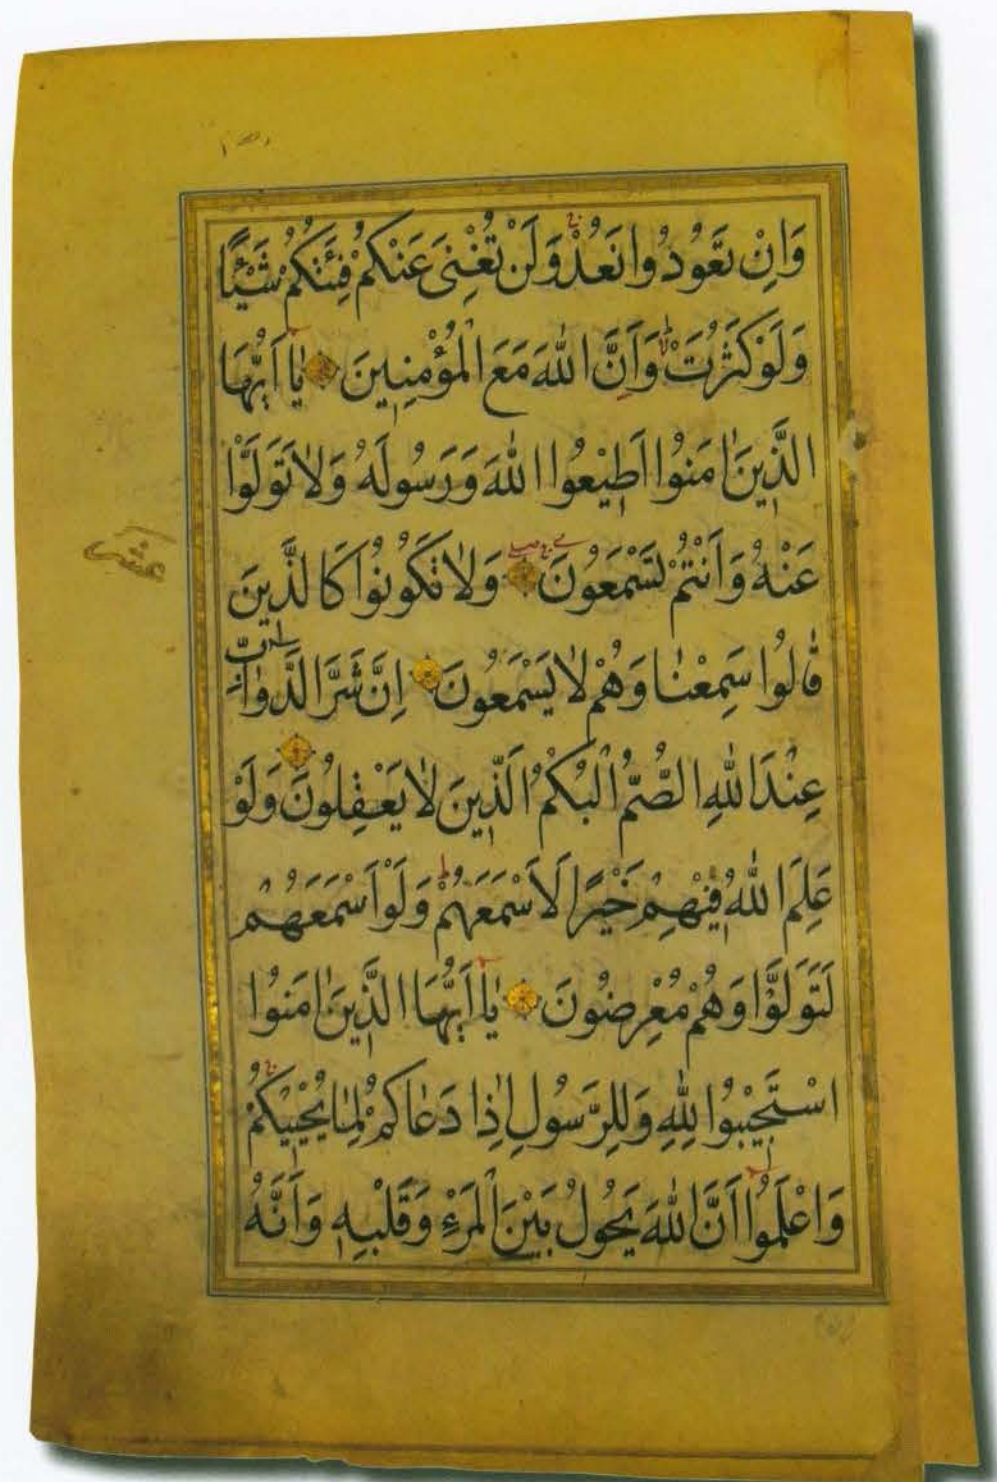 وَاِنْ تَعُودُوا نَعُدْ وَلَنْ تُغْنِىَ عَنْكُمْ فِئَتُكُمْ شَيْئًا
وَلَوْ كَثُرَتْ وَاَنَّ اللهَ مَعَ الْمُؤْمِنِينَ يَا اَيُّهَا
الَّذِينَ اٰمَنُوا اَطِيْعُوا اللهَ وَرَسُولَهُ وَلَا تَوَلَّوْا
عَنْهُ وَاَنْتُمْ تَسْمَعُونَ وَلَا تَكُونُوا كَالَّذِينَ
قَالُوا سَمِعْنَا وَهُمْ لَا يَسْمَعُونَ اِنَّ شَرَّ الدَّوَابِّ
عِنْدَ اللهِ الصُّمُّ الْبُكْمُ الَّذِينَ لَا يَعْقِلُونَ وَلَوْ
عَلِمَ اللهُ فِيْهِمْ خَيْرًا لَاَسْمَعَهُمْ وَلَوْ اَسْمَعَهُمْ
لَتَوَلَّوْا وَهُمْ مُعْرِضُونَ يَا اَيُّهَا الَّذِينَ اٰمَنُوا
اسْتَجِيْبُوا لِلهِ وَلِلرَّسُولِ اِذَا دَعَاكُمْ لِمَا يُحْيِيْكُمْ
وَاعْلَمُوا اَنَّ اللهَ يَحُولُ بَيْنَ الْمَرْءِ وَقَلْبِهِ وَاَنَّهُ
عشر